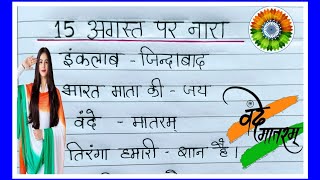 15 अगस्त पर नारा
इंकलाब - जिन्दाबाद
भारत माता की - जय
वंदे - मातरम्
तिरंगा हमारी - शान है।
वंदे
मातरम्